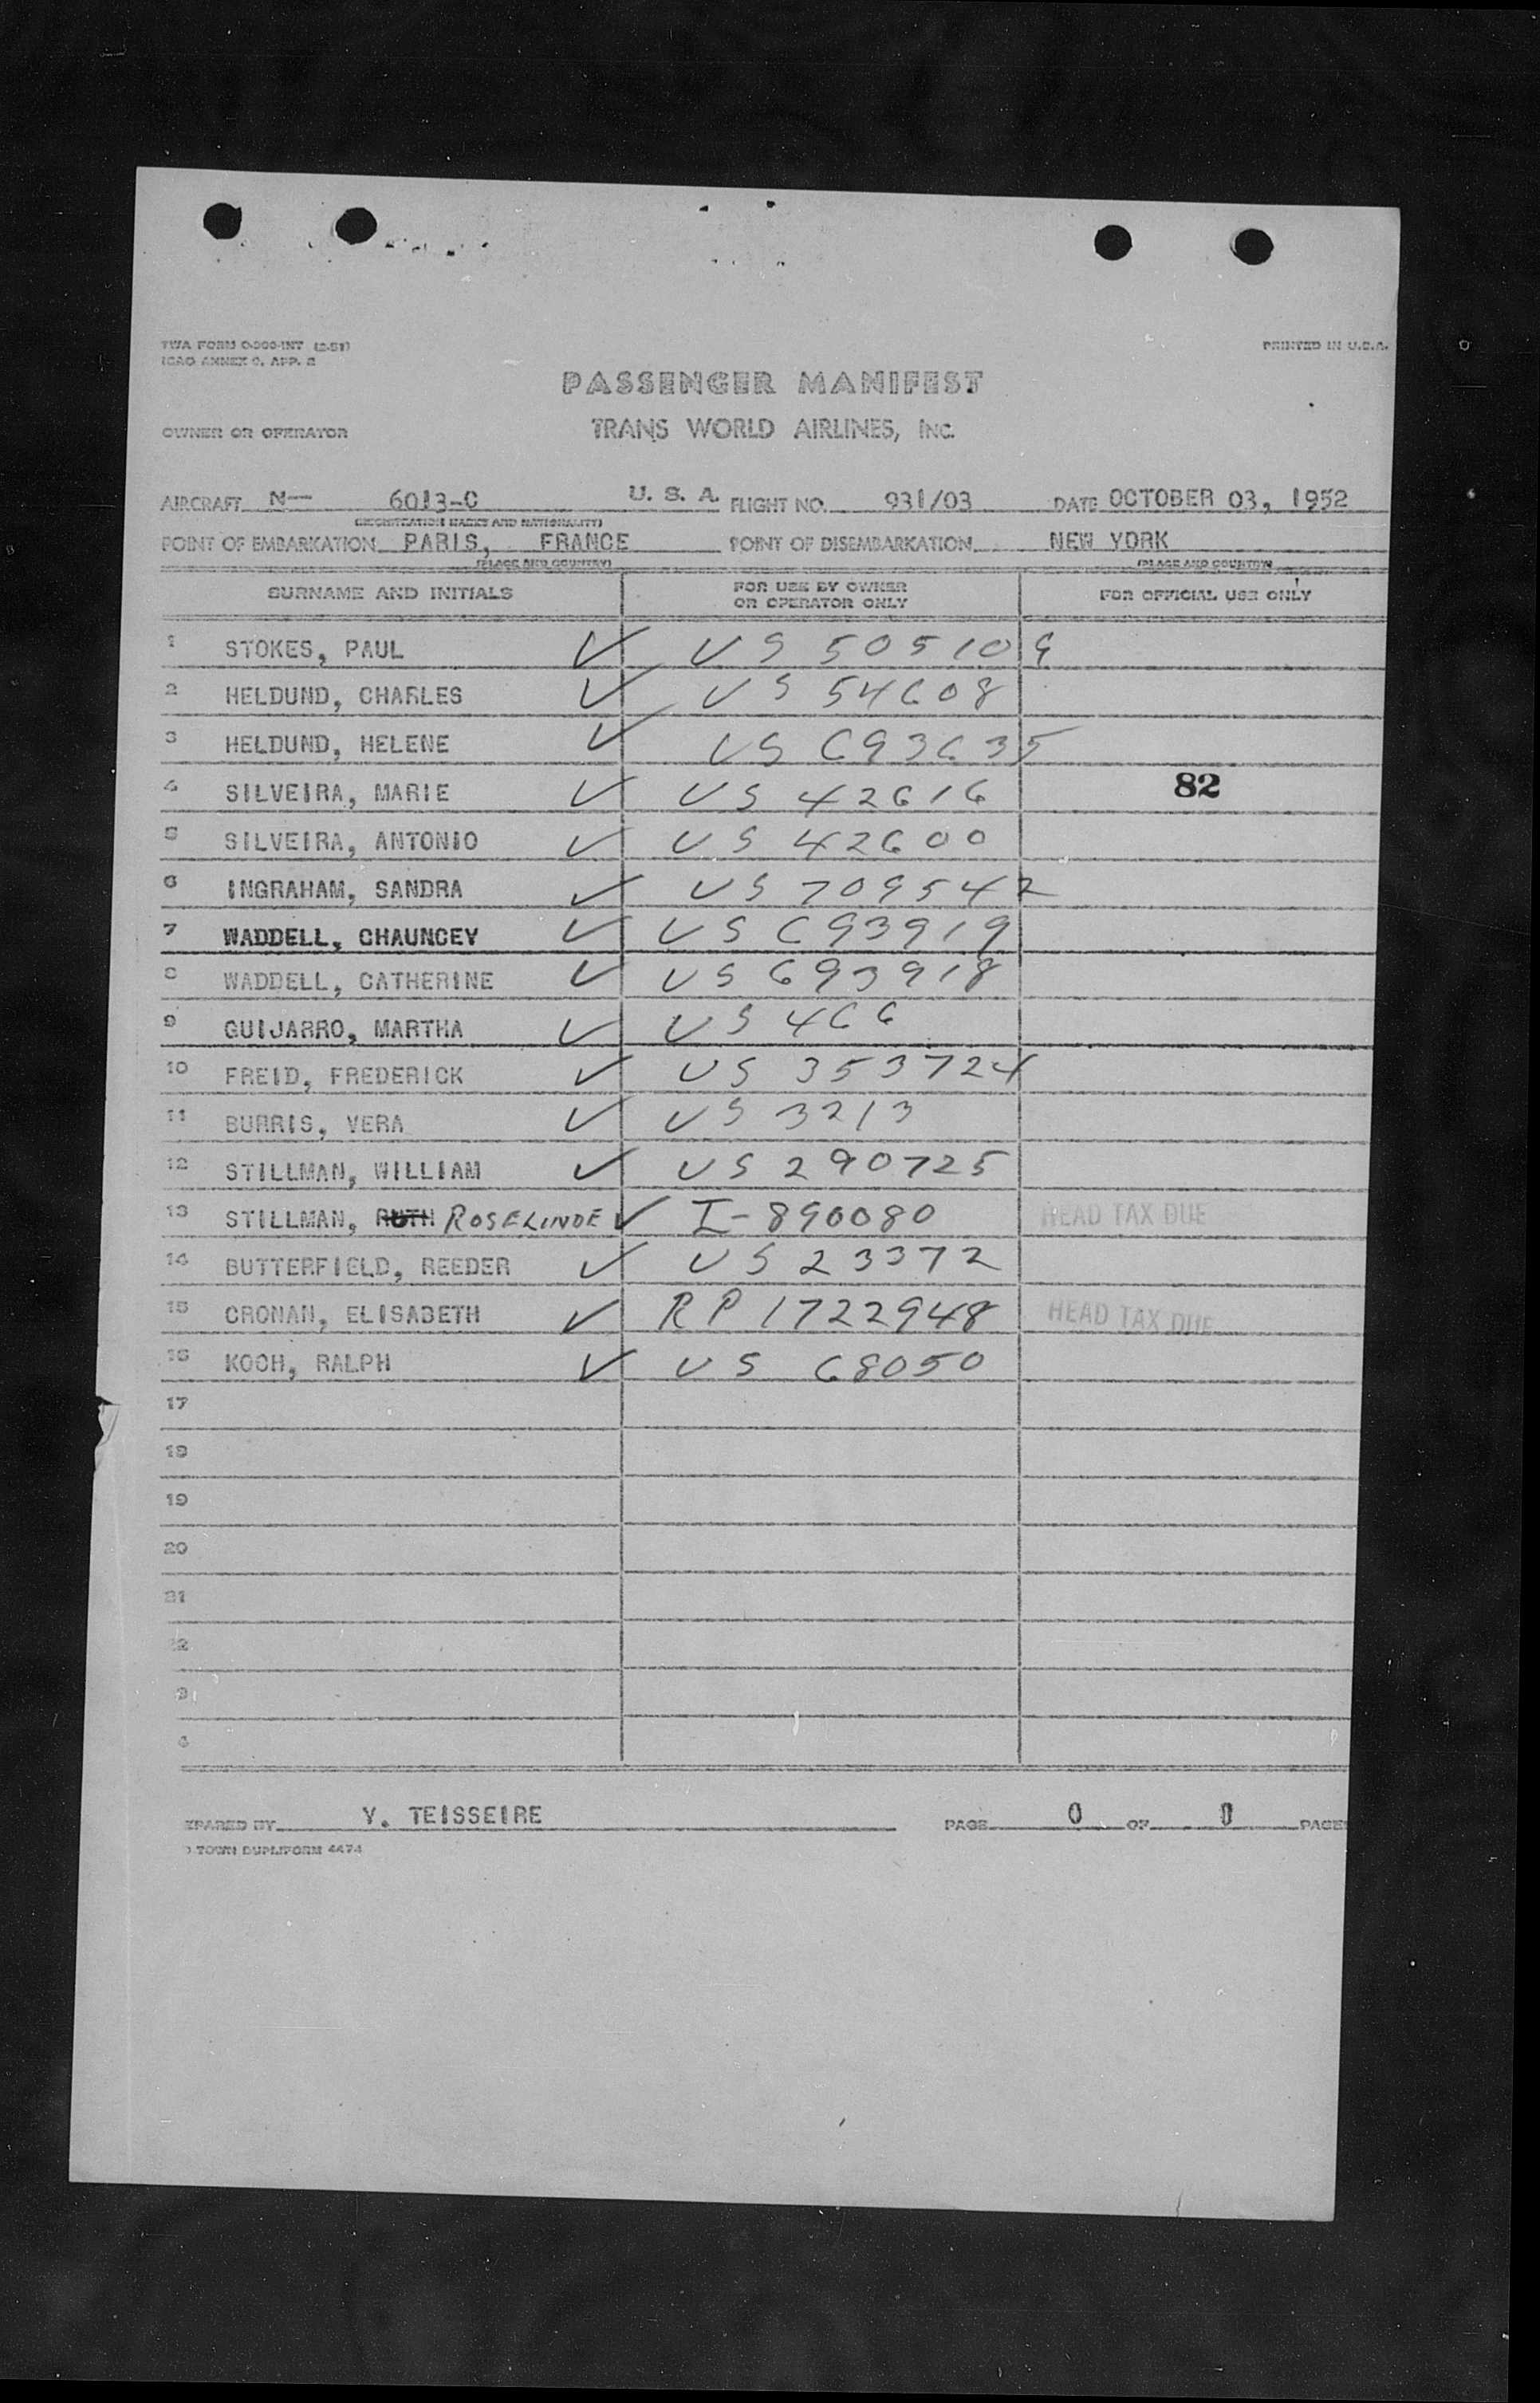 TWA FORM O-300-INT (2-51)
ICAO ANNEX 9, APP. 2
PRINTED IN U.S.A.
PASSENGER MANIFEST
OWNER OR OPERATOR TRANS WORLD AIRLINES, INC.
AIRCRAFT N— 6013-C U. S. A. FLIGHT NO. 931/03 DATE OCTOBER 03, 1952
(REGISTRATION MARKS AND NATIONALITY)
POINT OF EMBARKATION PARIS, FRANCE POINT OF DISEMBARKATION NEW YORK
(PLACE AND COUNTRY) (PLACE AND COUNTRY)
SURNAME AND INITIALS FOR USE BY OWNER OR OPERATOR ONLY FOR OFFICIAL USE ONLY
1 STOKES, PAUL ✓ US 505109
2 HELDUND, CHARLES ✓ US 54608
3 HELDUND, HELENE ✓ US 693635
4 SILVEIRA, MARIE ✓ US 42616 82
5 SILVEIRA, ANTONIO ✓ US 42600
6 INGRAHAM, SANDRA ✓ US 709542
7 WADDELL, CHAUNCEY ✓ US 693919
8 WADDELL, CATHERINE ✓ US 693918
9 GUIJARRO, MARTHA ✓ US 466
10 FREID, FREDERICK ✓ US 353724
11 BURRIS, VERA ✓ US 3213
12 STILLMAN, WILLIAM ✓ US 290725
13 STILLMAN, RUTH ROSELINDE ✓ I-890080 HEAD TAX DUE
14 BUTTERFIELD, REEDER ✓ US 23372
15 CRONAN, ELISABETH ✓ RP 1722948 HEAD TAX DUE
16 KOCH, RALPH ✓ US 68050
17
18
19
20
21
2
3
4
EPARED BY Y. TEISSEIRE PAGE 0 OF 0 PAGE
TOWN DUPLIFORM 4474